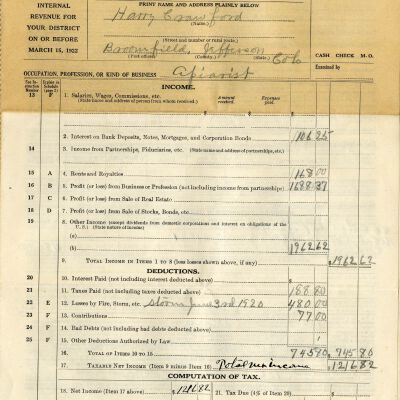 INTERNAL
REVENUE FOR
YOUR DISTRICT
ON OR BEFORE
MARCH 15, 1922
PRINT NAME AND ADDRESS PLAINLY BELOW
Harry Crawford
(Name.)
(Street and number or rural route.)
Broomfield, Jefferson Colo
(Post office) (County.) (State.)
CASH CHECK M.O.
Examined by
OCCUPATION, PROFESSION, OR KIND OF BUSINESS Apiarist
INCOME.
13 F 1. Salaries, Wages, Commissions, etc.
(State name and address of person from whom received.) Amount received. Expenses paid.
2. Interest on Bank Deposits, Notes, Mortgages, and Corporation Bonds 106 25
14 3. Income from Partnerships, Fiduciaries, etc. (State name and address of partnership, etc.)
15 A 4. Rents and Royalties 168 00
16 B 5. Profit (or loss) from Business or Profession (not including income from partnerships) 1688 37
17 C 6. Profit (or loss) from Sale of Real Estate
18 D 7. Profit (or loss) from Sale of Stocks, Bonds, etc.
19 8. Other Income (except dividends from domestic corporations and interest on obligations of the
U. S.) (State nature of income)
(a)
(b) 1962 62
9. TOTAL INCOME IN ITEMS 1 TO 8 (less losses shown above, if any) $ 1962 62
DEDUCTIONS.
20 10. Interest Paid (not including interest deducted above)
21 11. Taxes Paid (not including taxes deducted above) 188 80
22 E 12. Losses by Fire, Storm, etc. Storm June 3rd 1920 480 00
23 F 13. Contributions 77 00
24 F 14. Bad Debts (not including bad debts deducted above)
25 F 15. Other Deductions Authorized by Law
16. TOTAL OF ITEMS 10 TO 15 $ 745 80 $ 745 80
17. TAXABLE NET INCOME (Item 9 minus Item 16) Total Net Income $ 1216 82
COMPUTATION OF TAX.
18. Net Income (Item 17 above) $ 1216 82 21. Tax Due (4% of Item 20) $